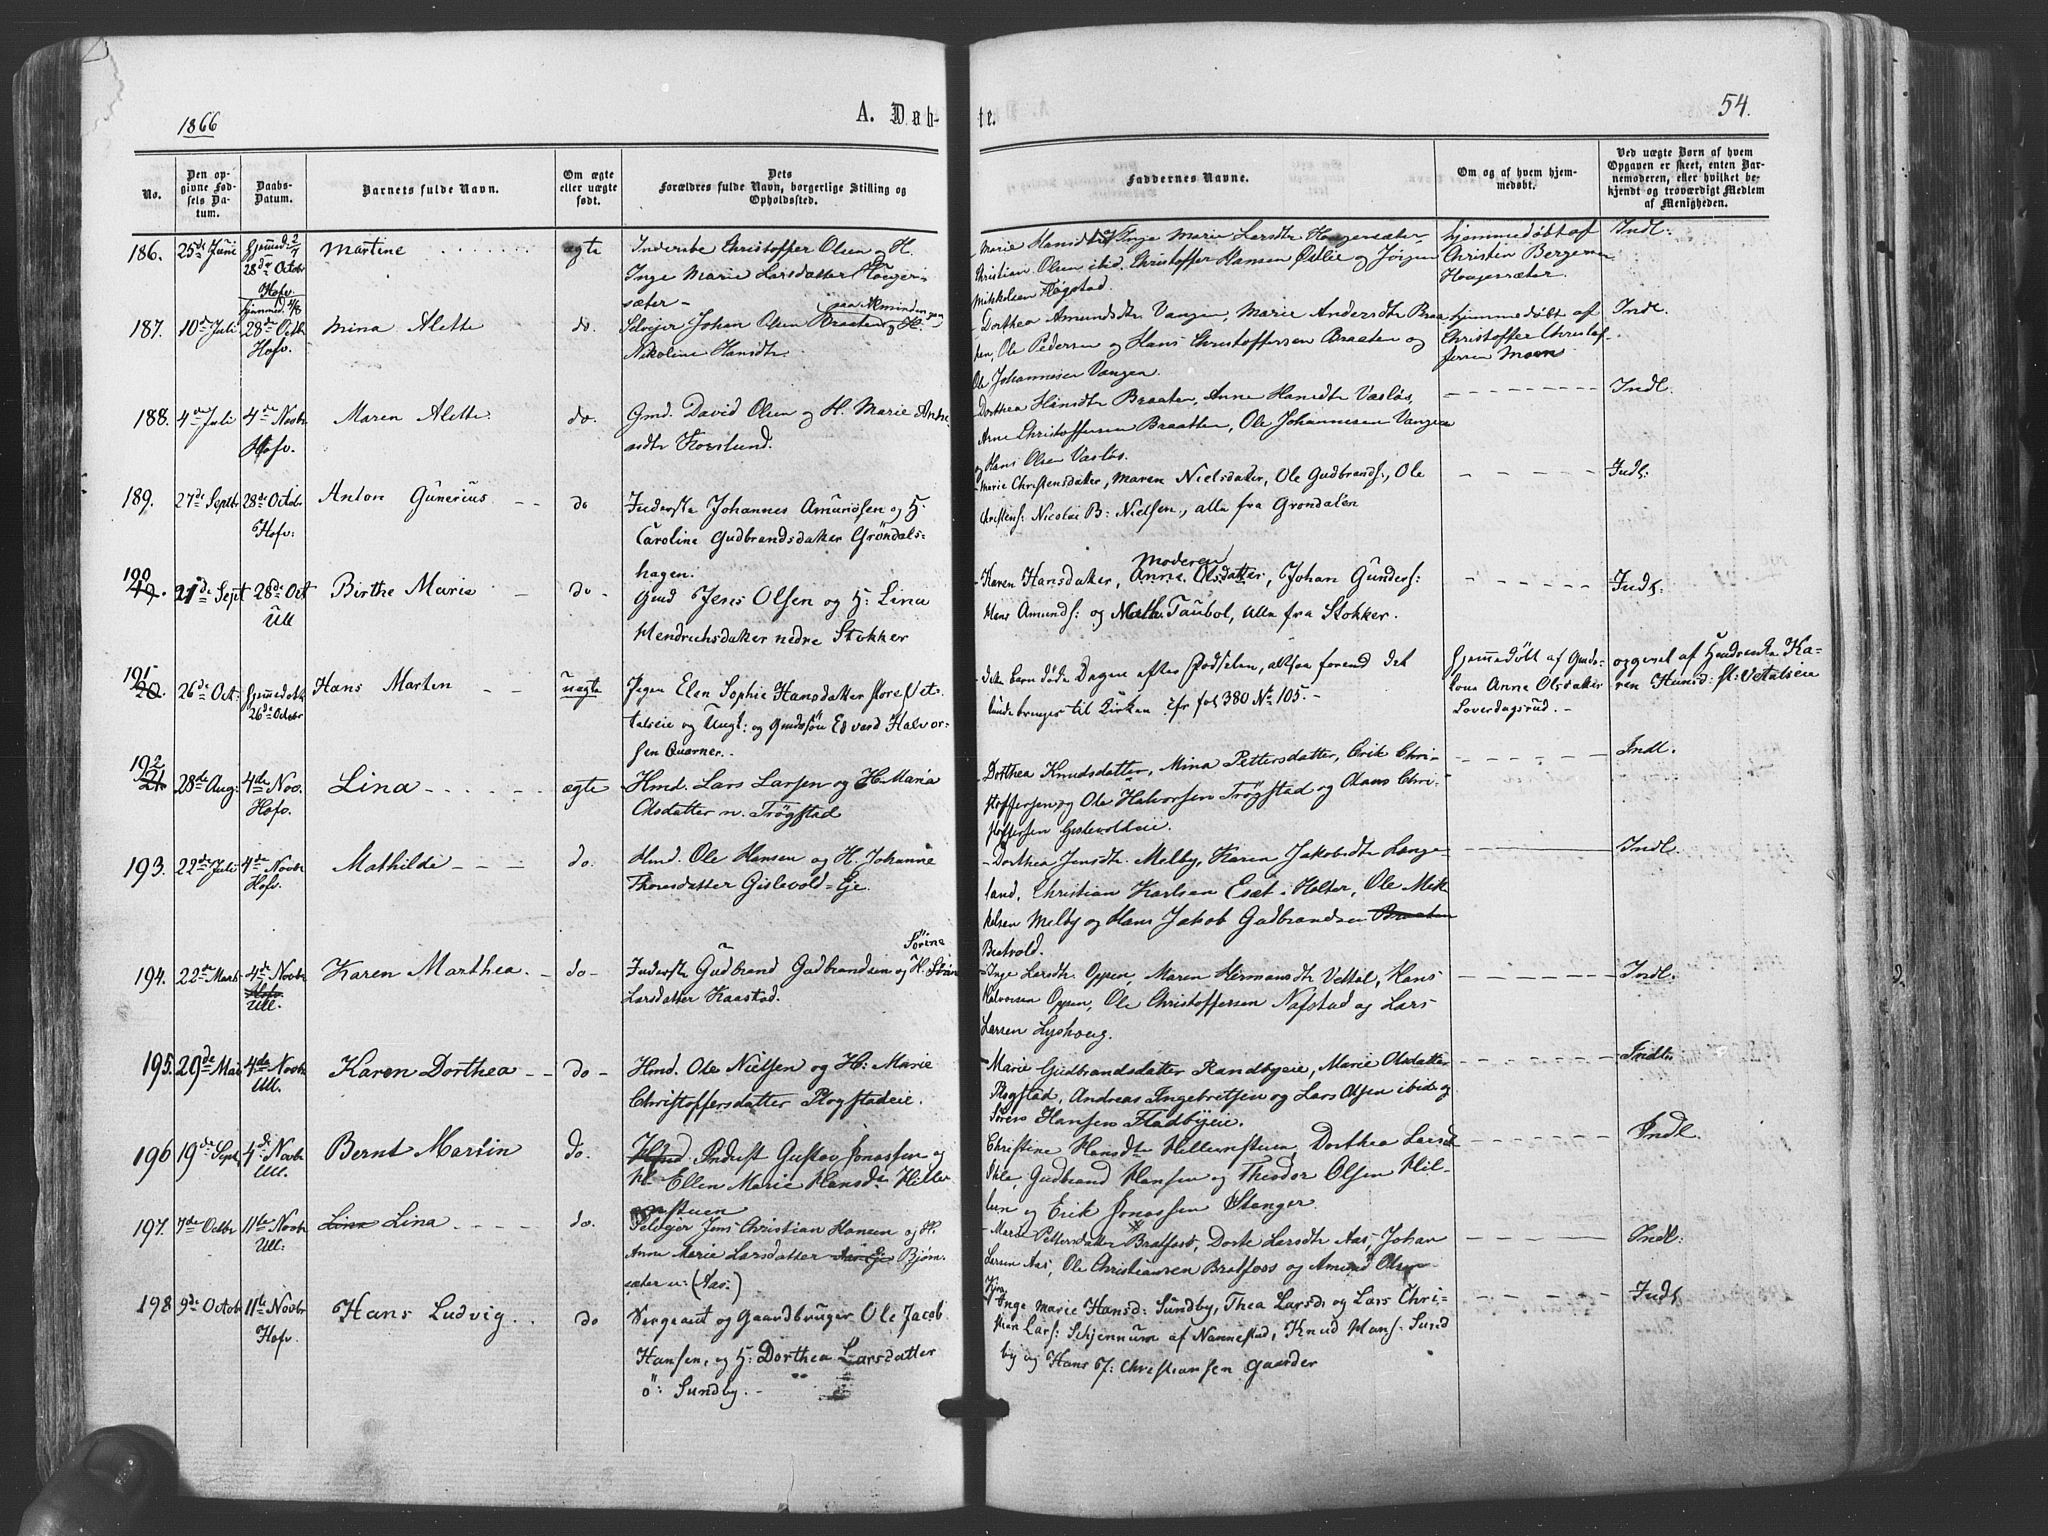 1866
A. Døb-
te.
54.
No.
Den op-
givne Fød-
sels Da-
tum.
Daabs-
Datum.
Barnets fulde Navn.
Om ægte
eller uægte
født.
Dets
Forældres fulde Navn, borgerlige Stilling og
Opholdssted.
Faddernes Navne.
Om og af hvem hjem-
medøbt.
Ved uægte Børn af hvem
Opgaven er skeet, enten Bar-
nemoderen, eller hvilket be-
kjendt og troværdigt Medlem
af Menigheden.
186. 25de Juni
28de Octbr
Hofv.
Martine
ægte
Inderste Christoffer Olsen og H.
Inge Marie Larsdatter
sæter
Marie Hansdtr Inge Marie Larsdtr
Christian Olsen ibid, Christoffer Hansen Østlie og Jørgen
Flogstad.
hjemmedøbt af
Christen Bergersen
Hougersæter.
Indl.
187. 10de Juli
28de Octbr
Hofv.
Mina Alette
do.
Selveier Johan Olsen Braaten og H.
Nikoline Hansdtr.
Dorthea Amundsdtr Vangen, Marie Andersdtr Braa
ten, Ole Pedersen og Hans Christoffersen Braaten og
Ole Johannesen Vangen.
hjemmedøbt af
Christoffer Christof
fersen Moen
Indl.
188. 4de Juli
4de Novbr
Hofv.
Maren Alette
do.
Gmd. David Olsen og H. Marie Andre
asdtr Korslund.
Dorthea Hansdtr Braaten, Anne Hansdtr Vasløs,
Arne Christoffersen Braaten, Ole Johannesen Vangen
og Hans Olsen Vasløs.
Indl.
189. 27de Septbr
28de Octobr
Hofv:
Anton Gunerius
do
Inderste Johannes Amundsen og H.
Caroline Gudbrandsdatter Gröndals-
hagen.
Marie Christensdatter, Maren Nielsdatter, Ole Gudbrands:, Ole
Christens: Nicolai B: Nielsen., alle fra Grøndalen
Indl.
190
21de Sept
28de Oct
Ull
Birthe Marie
do
Gmd Jens Olsen og H: Lina
Hendrichsdatter nedre Stokker
Moderen
Karen Hansdatter, Anne Olsdatter, Johan Gunders:
Hans Amunds: og Math Taubol, alle fra Stokker.
Indl.
191
20.
26de Oct:
Hjemmedøbt
26de Octobr
Hans Martin
uægte
Pigen Elen Sophie Hansdatter store Vet-
talseie og Ungk: og Gmdssøn Edvard Halvor-
sen Quarner.
dette barn døde Dagen efter Fødselen, altsaa forend det
kunde bringes til Kirken cfr fol 380 No 105.
Hjemmedøbt af Gmds-
kone Anne Olsdatter
Loverdagsrud.
opgivet af Huusmandsk Ka-
ren Hansd: st: Vetalseie
192
21.
28de Aug:
4de Nov.
Hofv.
Lina
ægte
Hmd. Lars Larsen og H. Maria
Olsdatter n. Trøgstad
Dorthea Knudsdatter, Mina Pettersdatter, Erik Chri-
stoffersen og Ole Halvorsen Trøgstad og Hans Chri-
stoffersen Gislevoldeie.
Indl.
193. 22de Juli
4de Novbr
Hofv.
Mathilde
do.
Hmd. Ole Hansen og H. Johanne
Thoresdatter Gislevold-Eje.
Dorthea Jensdtr. Melby, Karen Jakobsdtr Lange-
land, Christian Karlsen Eset i Holter, Ole Mik
kelsen Melby og Hans Jakob Gudbrandsen Braaten
Bestvold.
Indl.
194. 22de Marts
4de Novbr
Hofv.
Ull.
Karen Marthea.
do
Sørine
Inderste Gudbrand Gudbrandsen og H.
Larsdatter Kaastad.
Inge Larsdtr. Oppen, Maren Hermansdtr Vettal, Hans
Halvorsen Oppen, Ole Christoffersen Nafstad og Lars
Larsen Lyshoug.
Indl.
195. 29de Mai
4de Novbr
Ull.
Karen Dorthea
do
Hmd. Ole Nielsen og H: Marie
Christoffersdatter Plogstadeie.
Marie Gudbrandsdatter Randbyeie, Marie Olsdatter
Plogstad, Andreas Ingebretsen og Lars Olsen ibid og
Søren Hansen Fladbyeie.
Indl.
196 19de Sept.
4de Novbr
Ull.
Bernt Martin
do.
Hmd. Inderst Gustav Jonassen og
H. Ellen Marie Hansd. Hiller
enstuen
Christine Hansdtr Hillerenstuen, Dorthea Larsd
Ihle, Gudbrand Hansen og Theodor Olsen Hil-
leren og Erik Jonassen Stenger.
Indl.
197. 7de Octbr
11te Novbr
Ull:
Lina Lina
do.
Selveier Jens Christian Hansen og H.
Anne Marie Larsdatter Aas Eje Bjørn
sæter u: (Aas.)
Marie Pettersdatter Bratfoss, Dorte Larsdtr Aas, Johan
Larsen Aas, Ole Christiansen Bratfoss og Amund Olsen
Indl.
198 9de Octobr
11te Novbr
Hofv.
Hans Ludvig.
do
Sergeant og Gaardbruger Ole Jacob
Hansen, og H: Dorthea Larsdatter
ö: Sundby.
Inge Marie Hansd: Sundby, Thea Larsd: og Lars Chri-
stian Lars: Schjennum af Nannestad, Knud Hans: Sund
by og Hans T: Christiansen Gaarder
Indl.